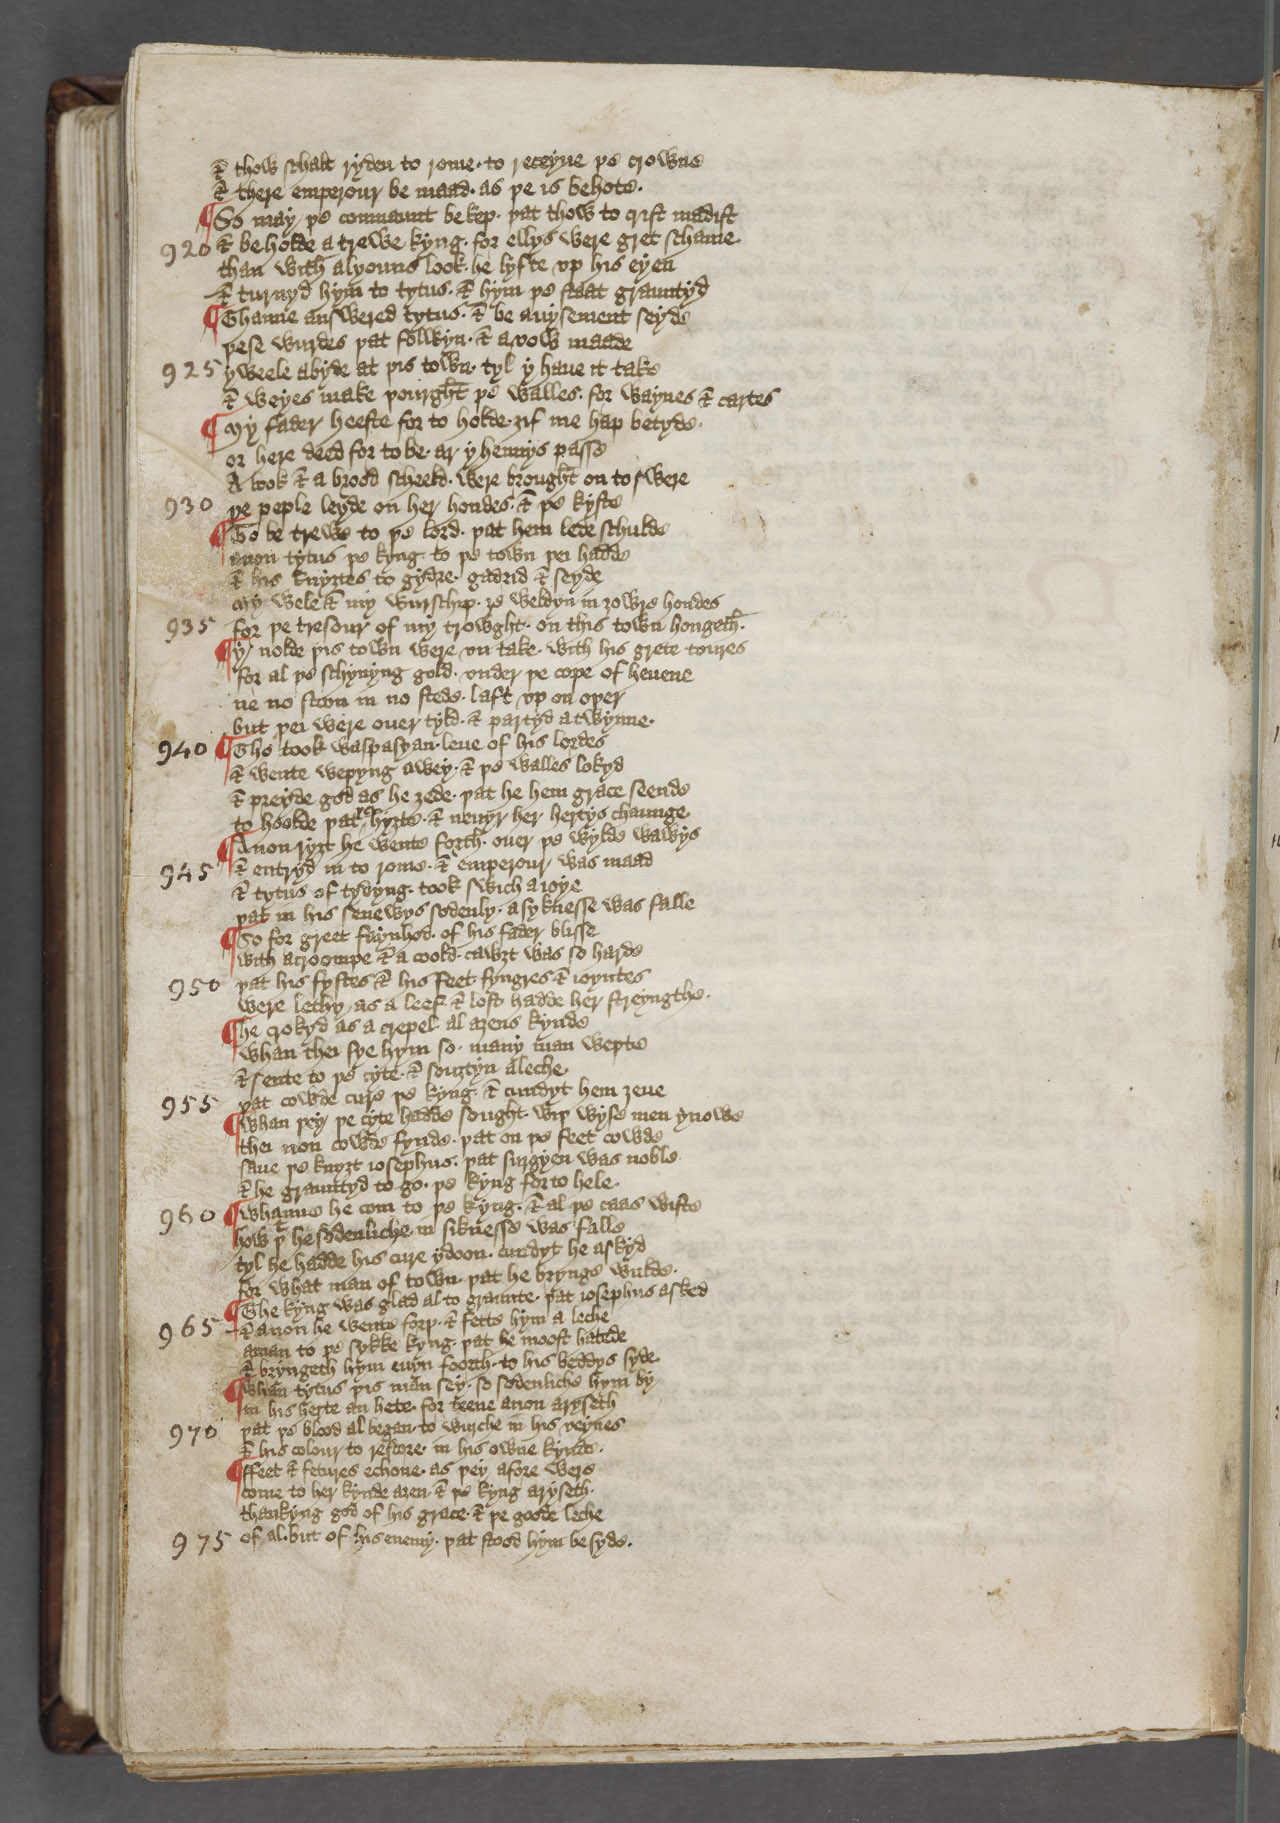 & thow schalt ryden to rome · to receyue þe crowne
& there emperour be maad · as þe is behote ·
¶ So may þe comnaunt be kep · þat thow to crist madist
920 & be holde a trewe kyng · for ellys were gret schame
than with alyouns look · he lyfte vp his eyen
& turnyd hym to tytus · & hym þe staat grauntyd
¶ Thanne answered tytus · & be auysement seyde
þese wurdes þat folwyn · & a vow maade
925 y weele abyde at þis town · tyl y haue it take
& weyes make þoirght þe walles · for waynes & cartes
¶ my fader heeste for to holde · ȝif me hap betyde ·
or here deed for to be · ar y hennys passe
A book & a brood scheeld · were brought on to swere
930 þe peple leyde on her hondes · & þe kyste
¶ To be trewe to þe lord · þat hem lede schulde
anon tytus þe kyng · to þe town þei hadde
& his knyȝtes to gydre · gadrid & seyde
my wele & my wurschip · ȝe weldyn in ȝowre hondes
935 for þe tresour of my trowght · on this town hongeth ·
¶ y nolde þis town were vn take · with his grete toures
for al þe schynyng gold · vnder þe cope of heuene
ne no stoon in no stede · laft vp on oþer
but þei were ouer tyld · & partyd atwynne ·
940 ¶ Tho took waspasyan · leue of his lordes
& wente wepyng awey · & þe walles lokyd
& preyde god as he ȝede · þat he hem grace seende
to hoolde þat þei hyȝte · & neuyr her hertys chaunge
¶ Anon ryȝt he wente forth · ouer þe wylde wawys
945 & entryd in to rome · & emperour was maad
& tytus of tydyng · took swich a ioye
þat in his senewys sodenly · a syknesse was falle
¶ So for greet faynhed · of his fader blisse
with a croompe & a coold · cawȝt was so harde
950 þat his fystes & his feet fyngres & ioyntes
were lethy as a leef · & lost hadde her streyngthe ·
¶ he crokyd as a crepel · al aȝens kynde
whan thei sye hym so · many man wepte
& sente to þe cyte · & sougtyn a leche
955 þat cowde cure þe kyng · & cundyt hem ȝeue
¶ whan þey þe cyte hadde sought · wiþ wyse men ynowe
thei non cowde fynde · þat on þe feet cowde
saue þe knyȝt iosephus · þat surgyen was noble
& he grauntyd to go · þe kyng for to hele
960 ¶ whanne he com to þe kyng · & al þe caas wiste
how þt he sodenliche in siknesse was falle
tyl he hadde his cure ydoon · cundyt he askyd
for what man of town · þat he brynge wulde ·
¶ The kyng was glad al to graunte · þat iosephus asked
965 & anon he wente forþ · & fette hym a leche
a man to þe sykke kyng · þat he moost hatede
& bryngeth hym euyn foorth · to his beddys syde
¶ whan tytus þis man sey · so sodenliche hym by
in his herte an hete · for teene anon aryseth
970 þat þe blood al began · to wirche in his veynes
& his colour to restore · in his owne kynde ·
¶ ffeet & fetures echone · as þey afore were
come to her kynde aȝen · & þe kyng aryseth ·
thankyng god of his grace · & þe goode leche
975 of al · but of his enemy · þat stood hym be syde ·